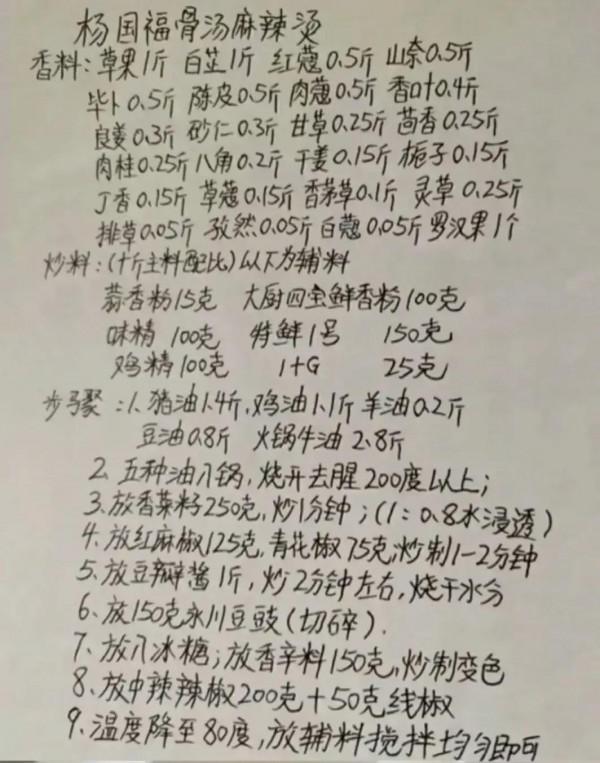 杨国福骨汤麻辣烫
香料：草果1斤 白芷1斤 红蔻0.5斤 山奈0.5斤
毕卜0.5斤 陈皮0.5斤 肉蔻0.5斤 香叶0.4斤
良姜0.3斤 砂仁0.3斤 甘草0.25斤 茴香0.25斤
肉桂0.25斤 八角0.2斤 干姜0.15斤 栀子0.15斤
丁香0.15斤 草蔻0.15斤 香茅草0.1斤 灵草0.25斤
排草0.05斤 孜然0.05斤 白蔻0.05斤 罗汉果1个
炒料：(十斤主料配比)以下为辅料
蒜香粉15克 大厨四宝鲜香粉100克
味精100克 特鲜1号 150克
鸡精100克 1+G 25克
步骤：1、猪油1.4斤,鸡油1.1斤 羊油0.2斤
豆油0.8斤 火锅牛油2.8斤
2、五种油入锅，烧开去腥200度以上；
3、放香菜籽250克，炒1分钟；(1：0.8水浸透)
4、放红麻椒125克，青花椒75克，炒制1-2分钟
5、放豆瓣酱1斤，炒2分钟左右，烧干水分
6、放150克永川豆豉(切碎).
7、放入冰糖；放香辛料150克，炒制变色
8、放中辣辣椒200克+50克线椒
9、温度降至80度，放辅料搅拌均匀即可